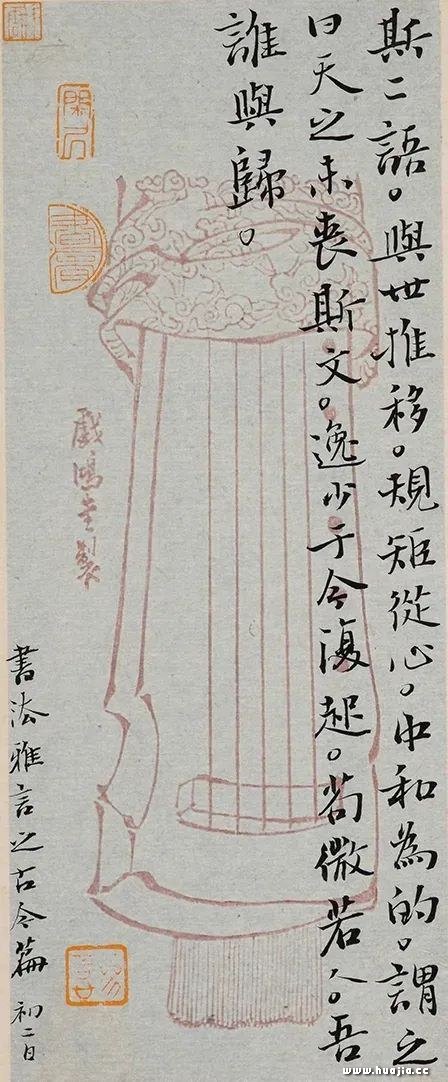 斯二語。與世推移。規矩從心。中和為的。謂之
曰天之未喪斯文。逸少于今復起。苟微若人。吾
誰與歸。
戲鴻堂製
書法雅言之古今篇 初二日
www.huajia.cc